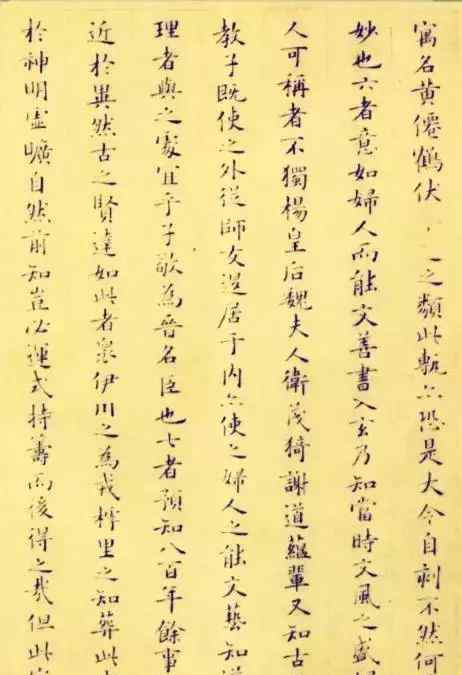 寓名黄僊鶴伏之類此甎亦恐是大令自刺不然何
妙也六者意如婦人而能文善書入玄乃知當時文風之盛
人可稱者不獨楊皇后魏夫人衛茂猗謝道蘊輩又知古
教子既使之外從師友退居于内亦使之婦人之能文藝知道
理者與之處宜乎子敬為晉名臣也七者預知八百年餘事
近於異然古之賢達如此者衆伊川之為戎樗里之知葬此
於神明虛曠自然前知豈必運式持籌而後得之哉但此